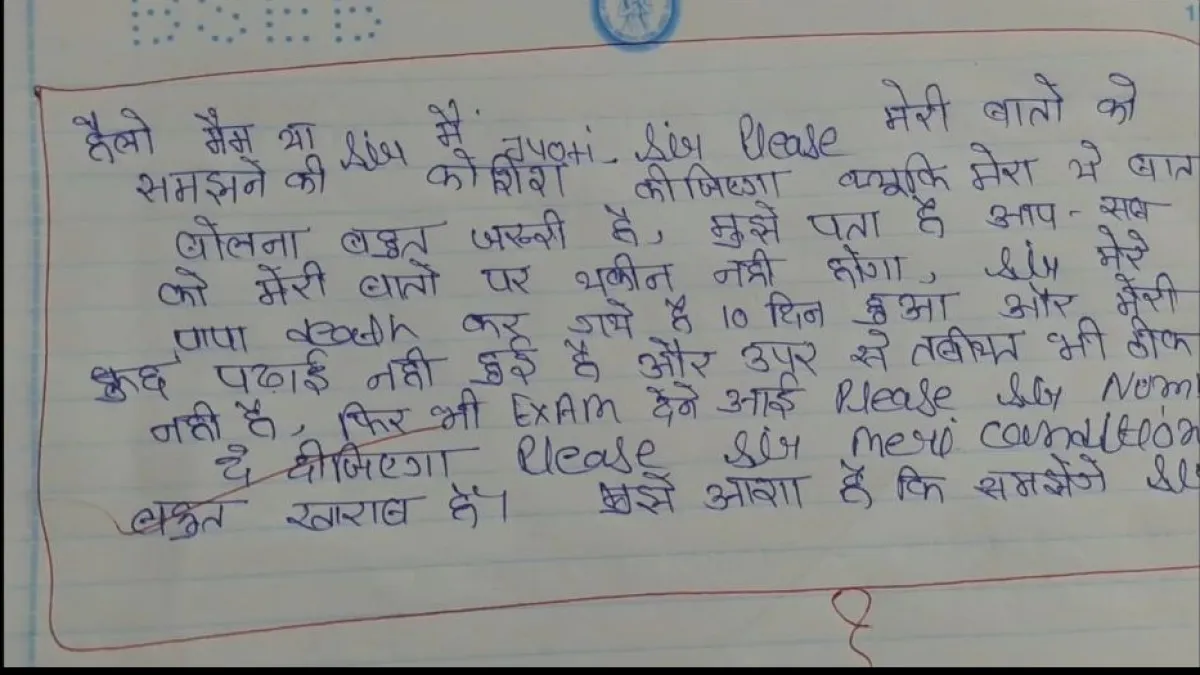 BSEB
हैलो मैम या Sir मैं Jyoti Sir Please मेरी बातो को
समझने की कोशिश कीजिएगा क्यूकि मेरा ये बात
बोलना बहुत जरूरी है, मुझे पता है आप-सब
को मेरी बातो पर यकीन नही होगा, Sir मेरे
पापा death कर गये है 10 दिन हुआ और मेरी
कुछ पढाई नही हुई है और उपर से तबीयत भी ठीक
नही है, फिर भी EXAM देने आई Please Sir Nom
दे दीजिएगा Please Sir meri condition
बहुत खाराब है। मुझे आशा है कि समझेंगे